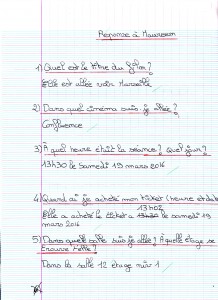 Réponse à Maureen
1) Quel est le titre du film?
Elle est allée voir Marseille
2) Dans quel cinéma suis je allée?
Confluence
3) À quel heure était la séance? Quel jour?
13h30 le samedi 19 mars 2016
4) Quand ai je acheté mon ticket (heure et date
Elle a acheté le ticket a 13h30 le samedi 19
mars 2016
5) Dans quelle salle suis je allée? À quelle étage se
trouve t'elle?
Dans la salle 12 étage mùr 1